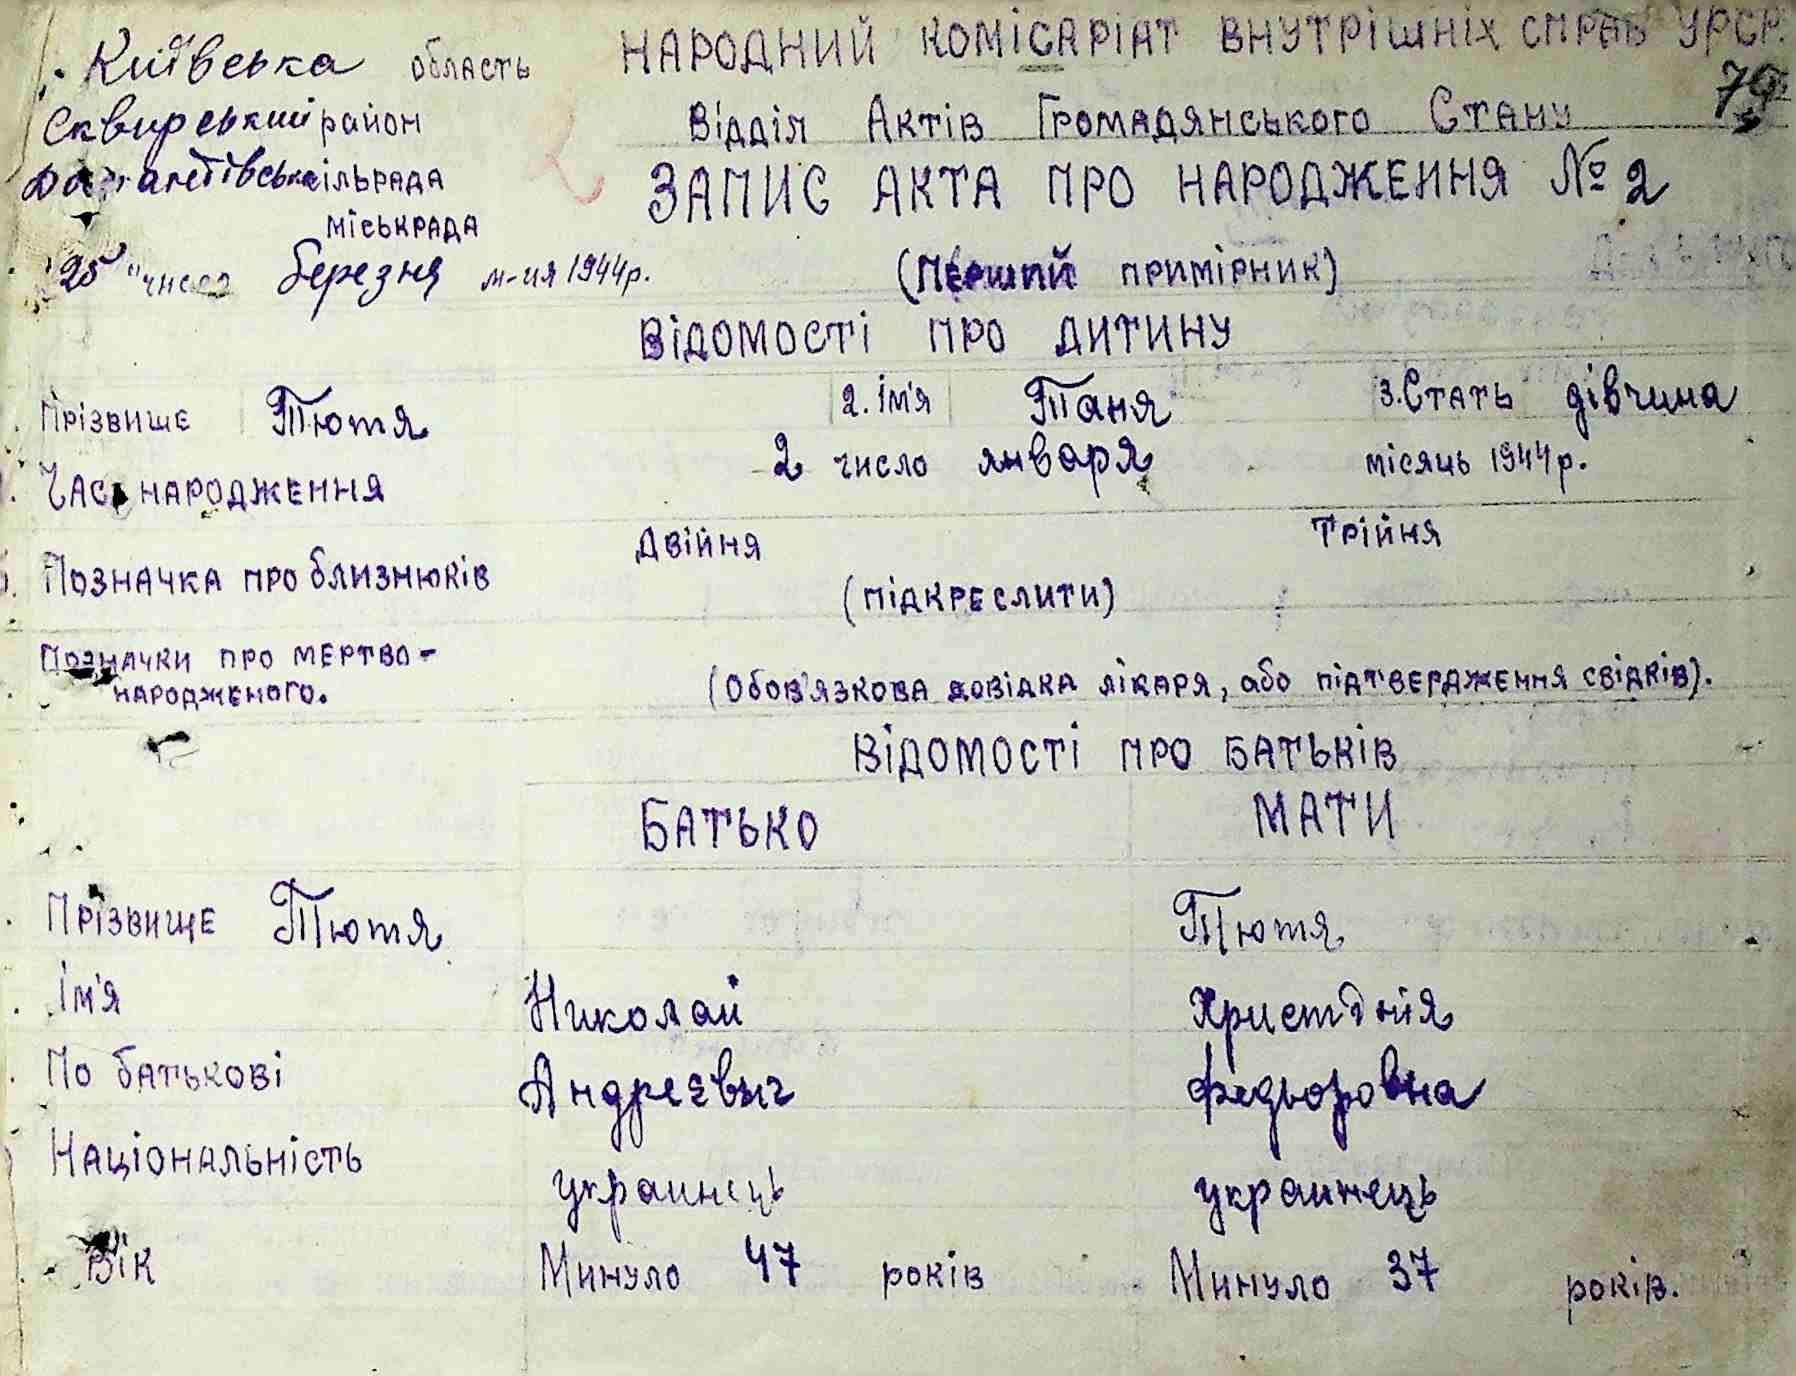 Київська область НАРОДНИЙ КОМІСАРІАТ ВНУТРІШНІХ СПРАВ УРСР.
79
Сквирський район Відділ Актів Громадянського Стану
сільрада ЗАПИС АКТА ПРО НАРОДЖЕННЯ № 2
міськрада
"25" числа березня м-ця 1944р. (Перший примірник)
ВІДОМОСТІ ПРО ДИТИНУ
Прізвище Тютя 2. Ім'я Таня 3. Стать дівчина
Час народження 2 число января місяць 1944р.
Двійня Трійня
Позначка про близнюків
(підкреслити)
Позначки про мертво-
народженого. (Обов'язкова довідка лікаря, або підтвердження свідків).
ВІДОМОСТІ ПРО БАТЬКІВ
БАТЬКО МАТИ
Прізвище Тютя Тютя
Ім'я Николай
По батькові Андреевыч Федьоровна
Національність украинець украинець
Вік Минуло 47 років Минуло 37 років.